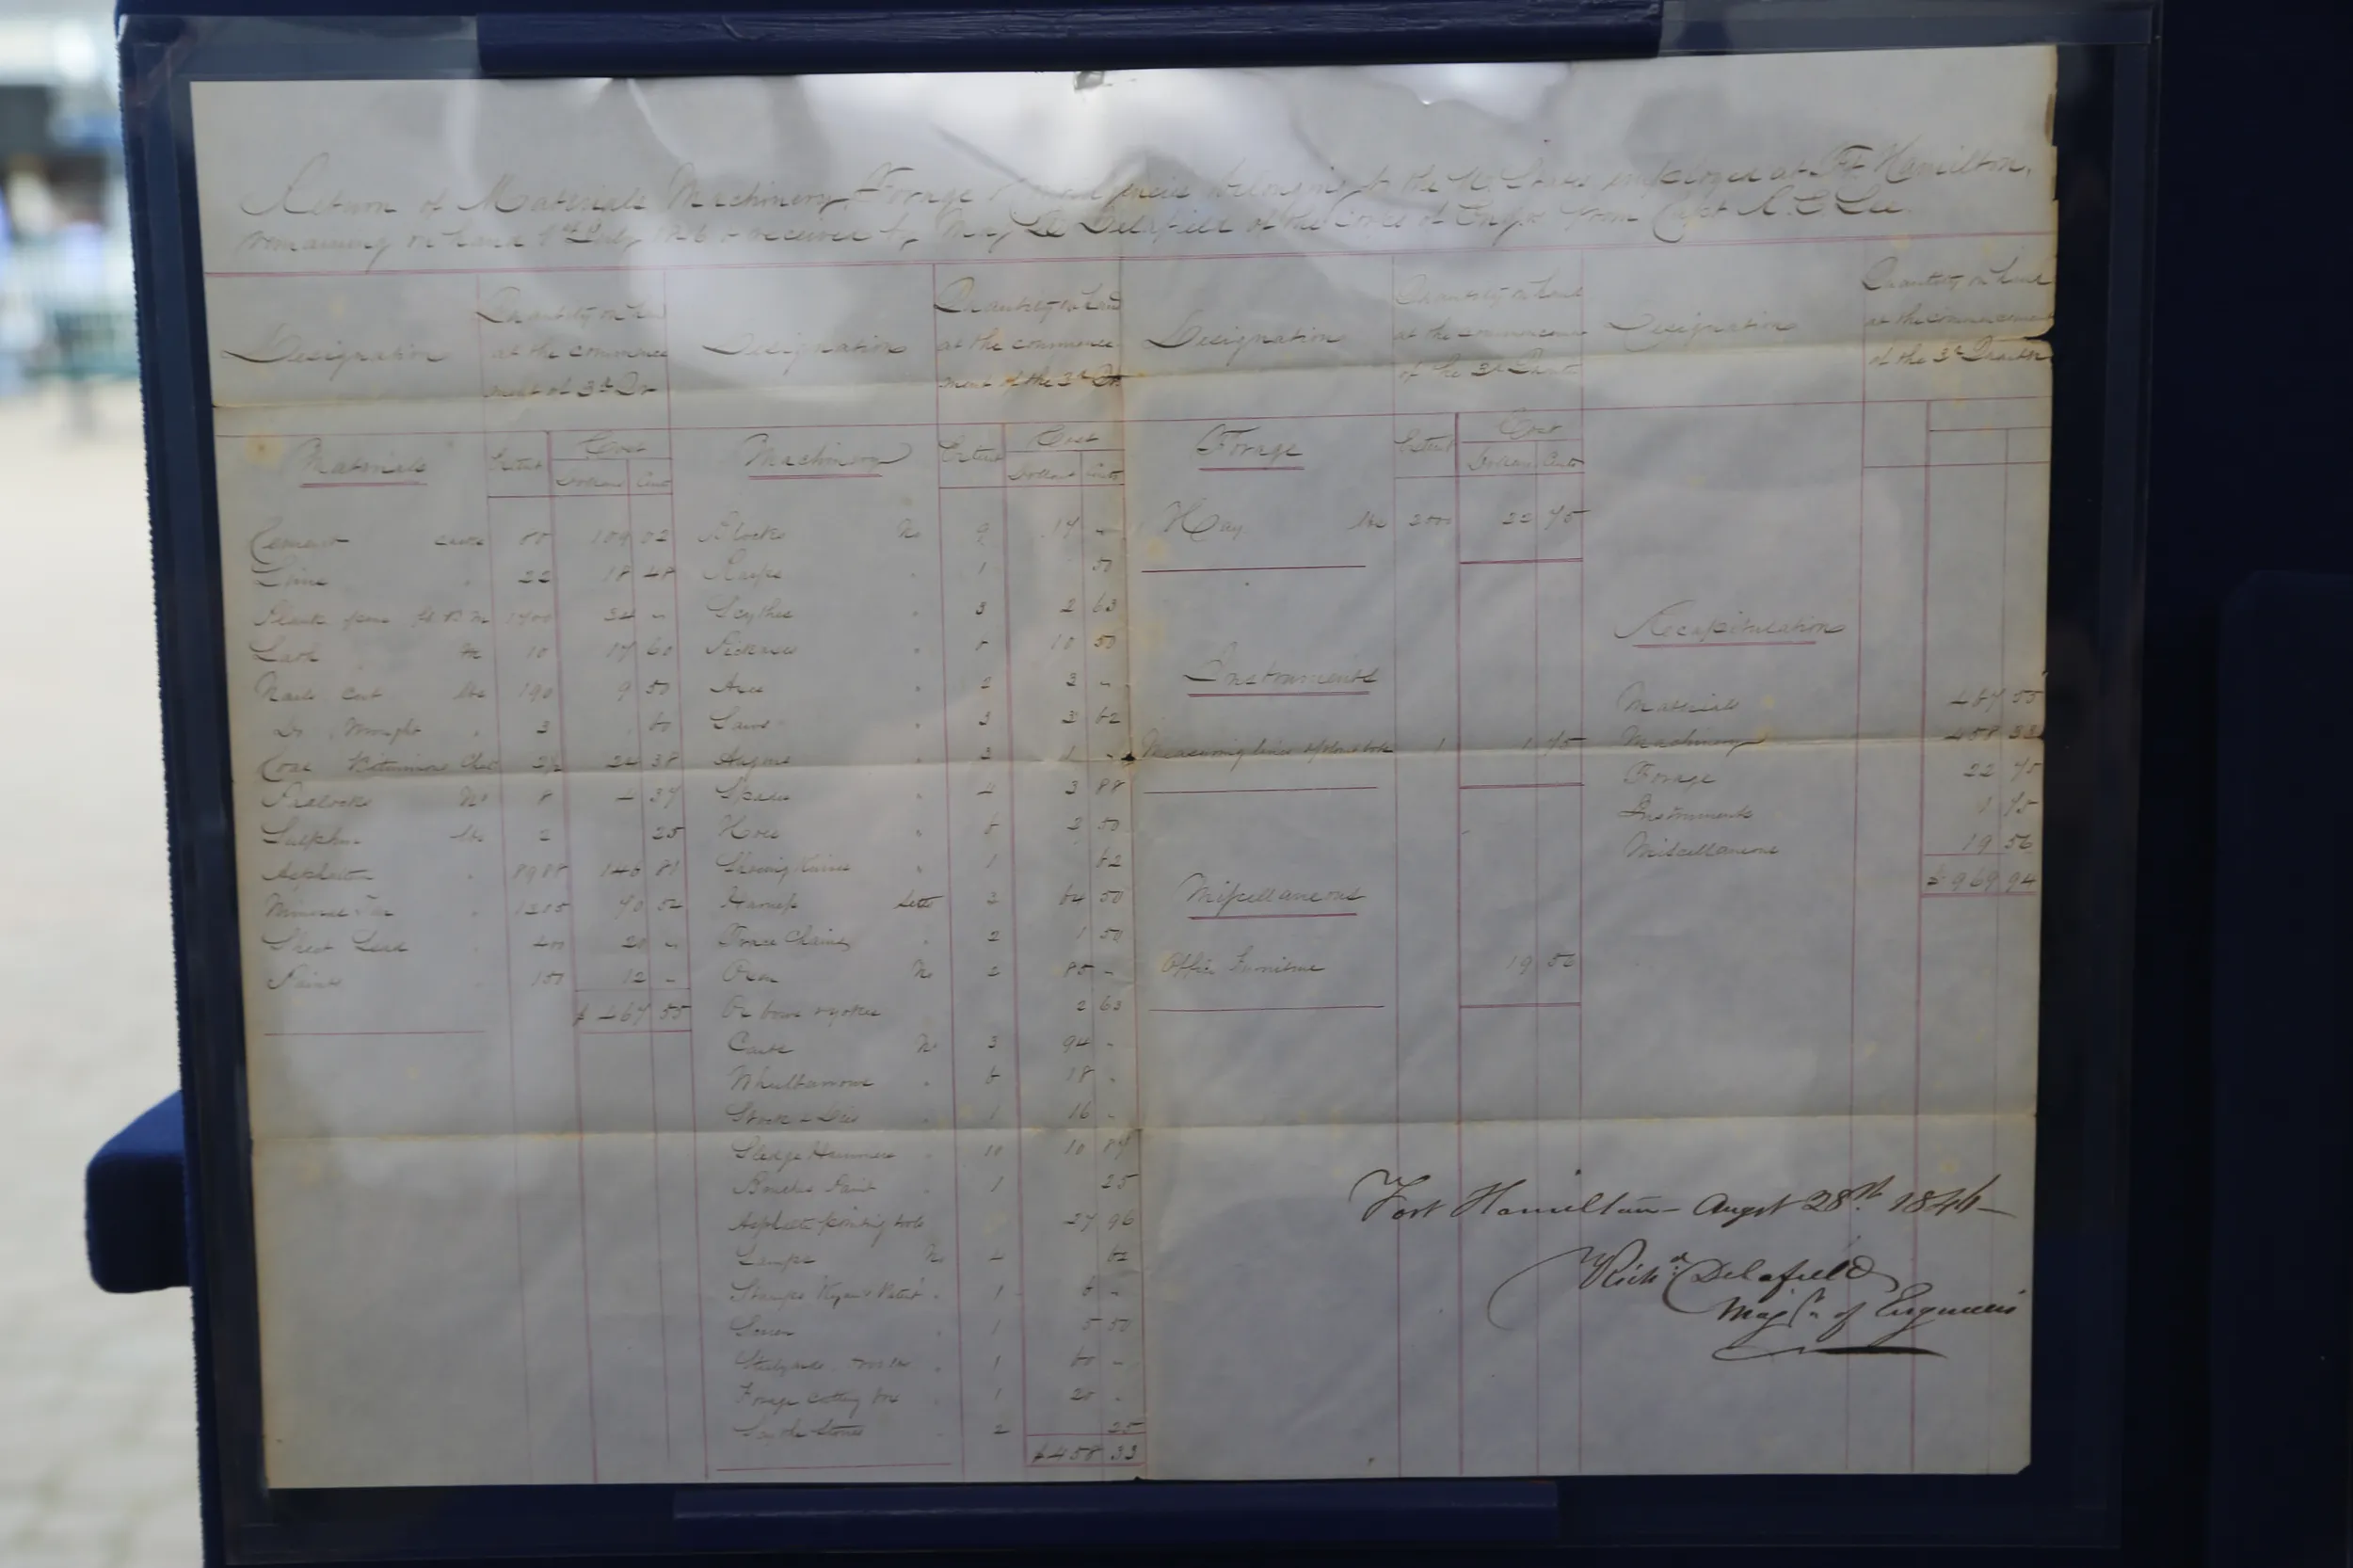 Return of Materials Machinery, Forage belonging to the U. States employed at Ft. Hamilton,
remaining on hand 1st July & received by Maj. Delafield of the Corps of Engrs from Capt R. E. Lee.
Designation
Quantity on hand
at the commence
ment of 3d Qr
Designation
Quantity on hand
at the commence
ment of the 3d Qr
Designation
Quantity on hand
at the commencement
of the 3d Quarter
Designation
Quantity on hand
at the commencement
of the 3d Quarter
Materials Extent Cost
Dollars Cents
Cement casks 80 109 02
Lime " 22 18 48
Plank ft B M 1700 34 "
Lath 10 17 60
Nails cut lbs 190 9 50
Do Wrought " 3 60
Coal Bituminous 24 38
Padlocks No 8 4 37
Sulphur lbs 2 25
Asphaltum " 8988 146 81
Mineral Tar "
Sheet Lead " 400 20 "
Paints " 150 12 -
$ 467 55
Machinery Extent Cost
Dollars Cents
Blocks No 9 17 -
Rasps " 1 50
Scythes " 3 2 63
Pickaxes " 8 10 50
Axes " 2 3 "
Saws " 3 3 62
Augers " 3 1 "
Spades " 4 3 88
Hoes " 6 2 50
Shoeing Knives " 1 62
Harness setts 3 64 50
Trace Chains " 2 1 50
Oxen No 2 85 -
Ox bows & yokes 2 63
Carts No 3 94 -
Wheelbarrows " 6 18 "
Stock & Dies " 1 16 -
Sledge Hammers " 10 10
Brushes Paint " 1 25
Asphalte pointing tools 27 96
Lamps No 4 62
Stamps Patent " 1 6 -
" 1 5 50
Steelyards " 1 60 -
Forage Cutting box " 1 20 -
Scythe Stones 2 25
$ 458 33
Forage Extent Cost
Dollars Cents
Hay lbs 2500 22 75
Instruments
Measuring lines 1 1 75
Miscellaneous
Office Furniture 19 56
Recapitulation
Materials 467 55
Machinery 458 33
Forage 22 75
Instruments 1 75
Miscellaneous 19 56
$ 969 94
Fort Hamilton - Augst 28th. 1846 -
Richd. Delafield
Maj. of Engineers